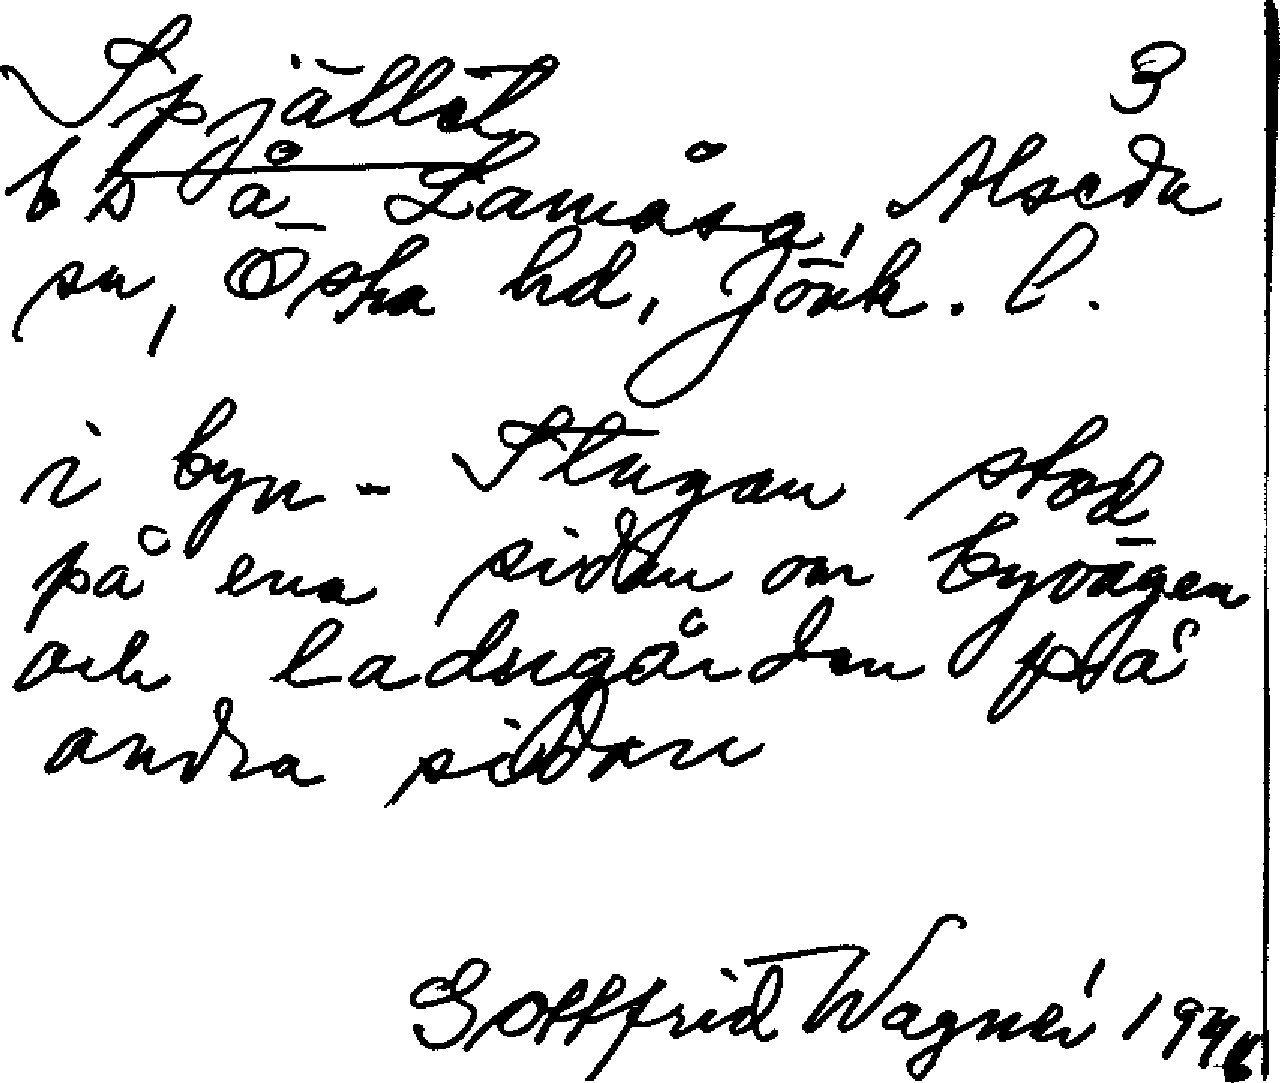 Spjället 3
bs å Lamåsa, Alseda
sn, Östra hd, Jönk. l.
i byn - Stugan stod
på ena sidan om byvägen
och ladugården på
andra sidan
Gottfrid Wagnér 1946